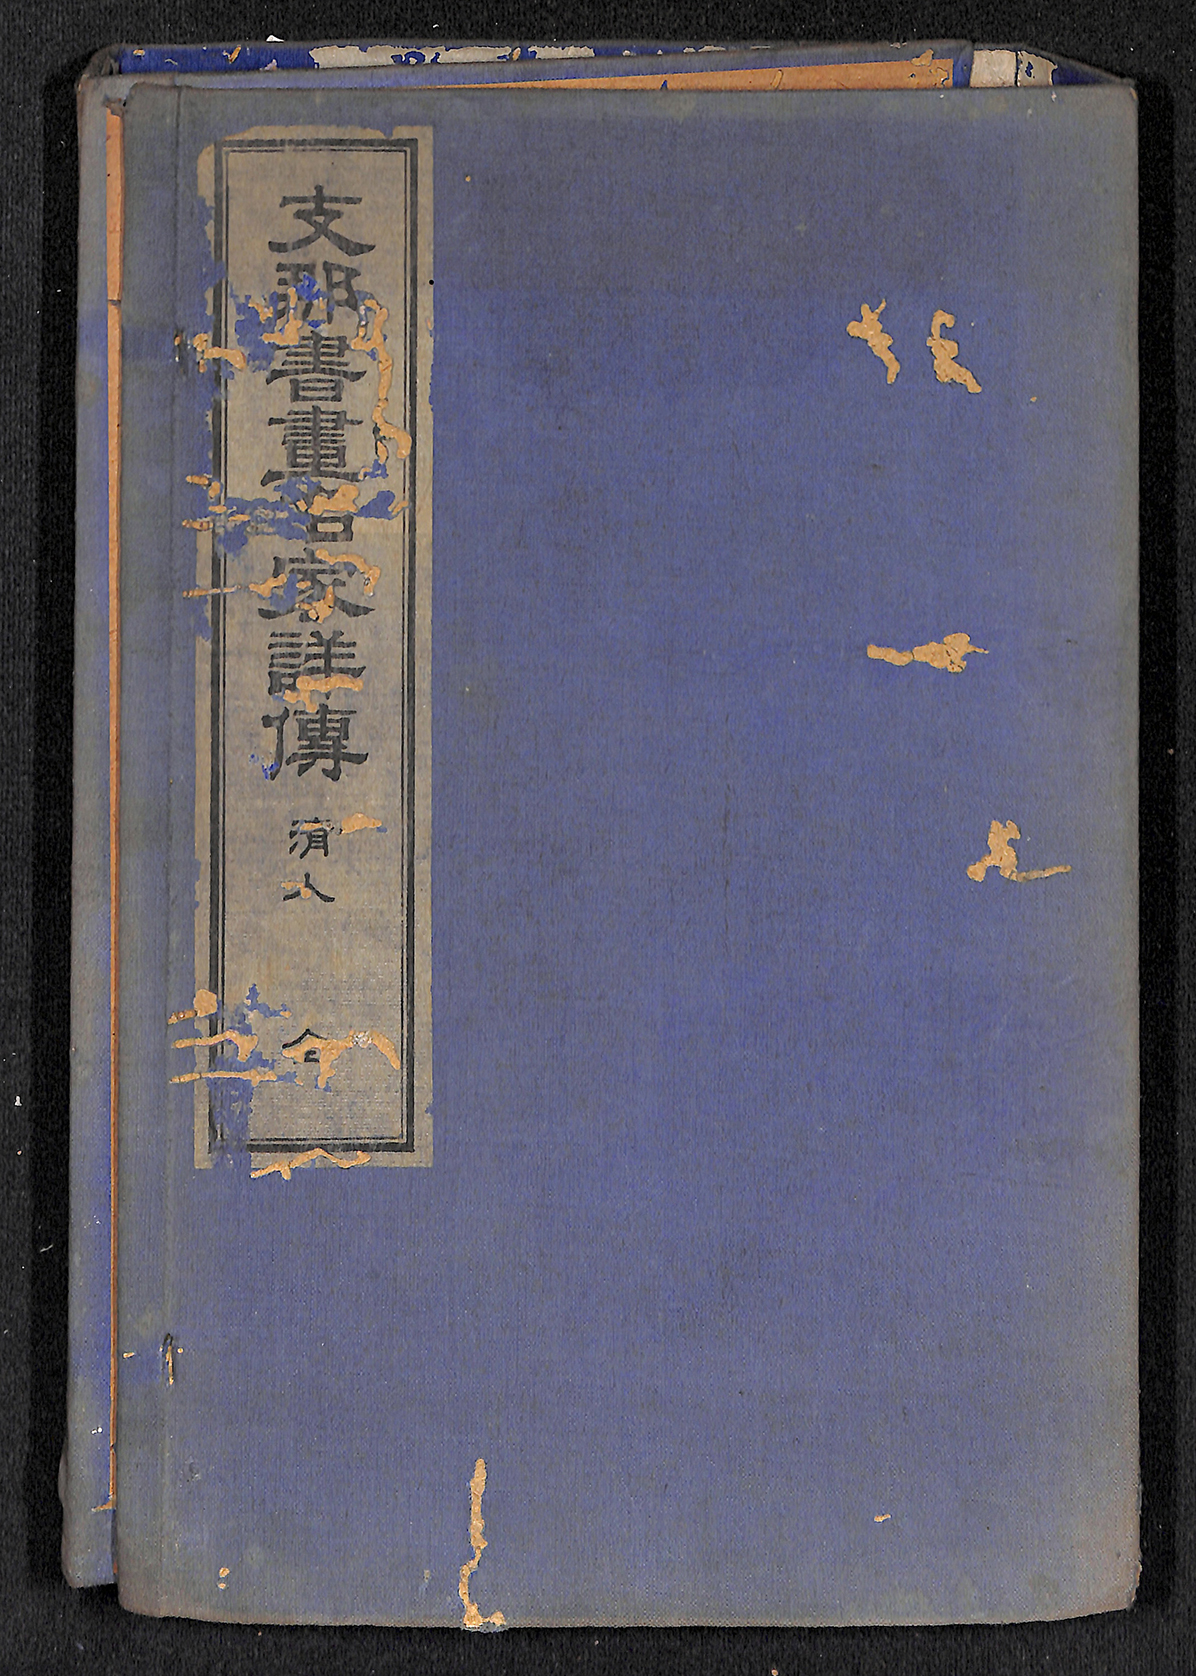 支那書畫名家詳傳
清人
全